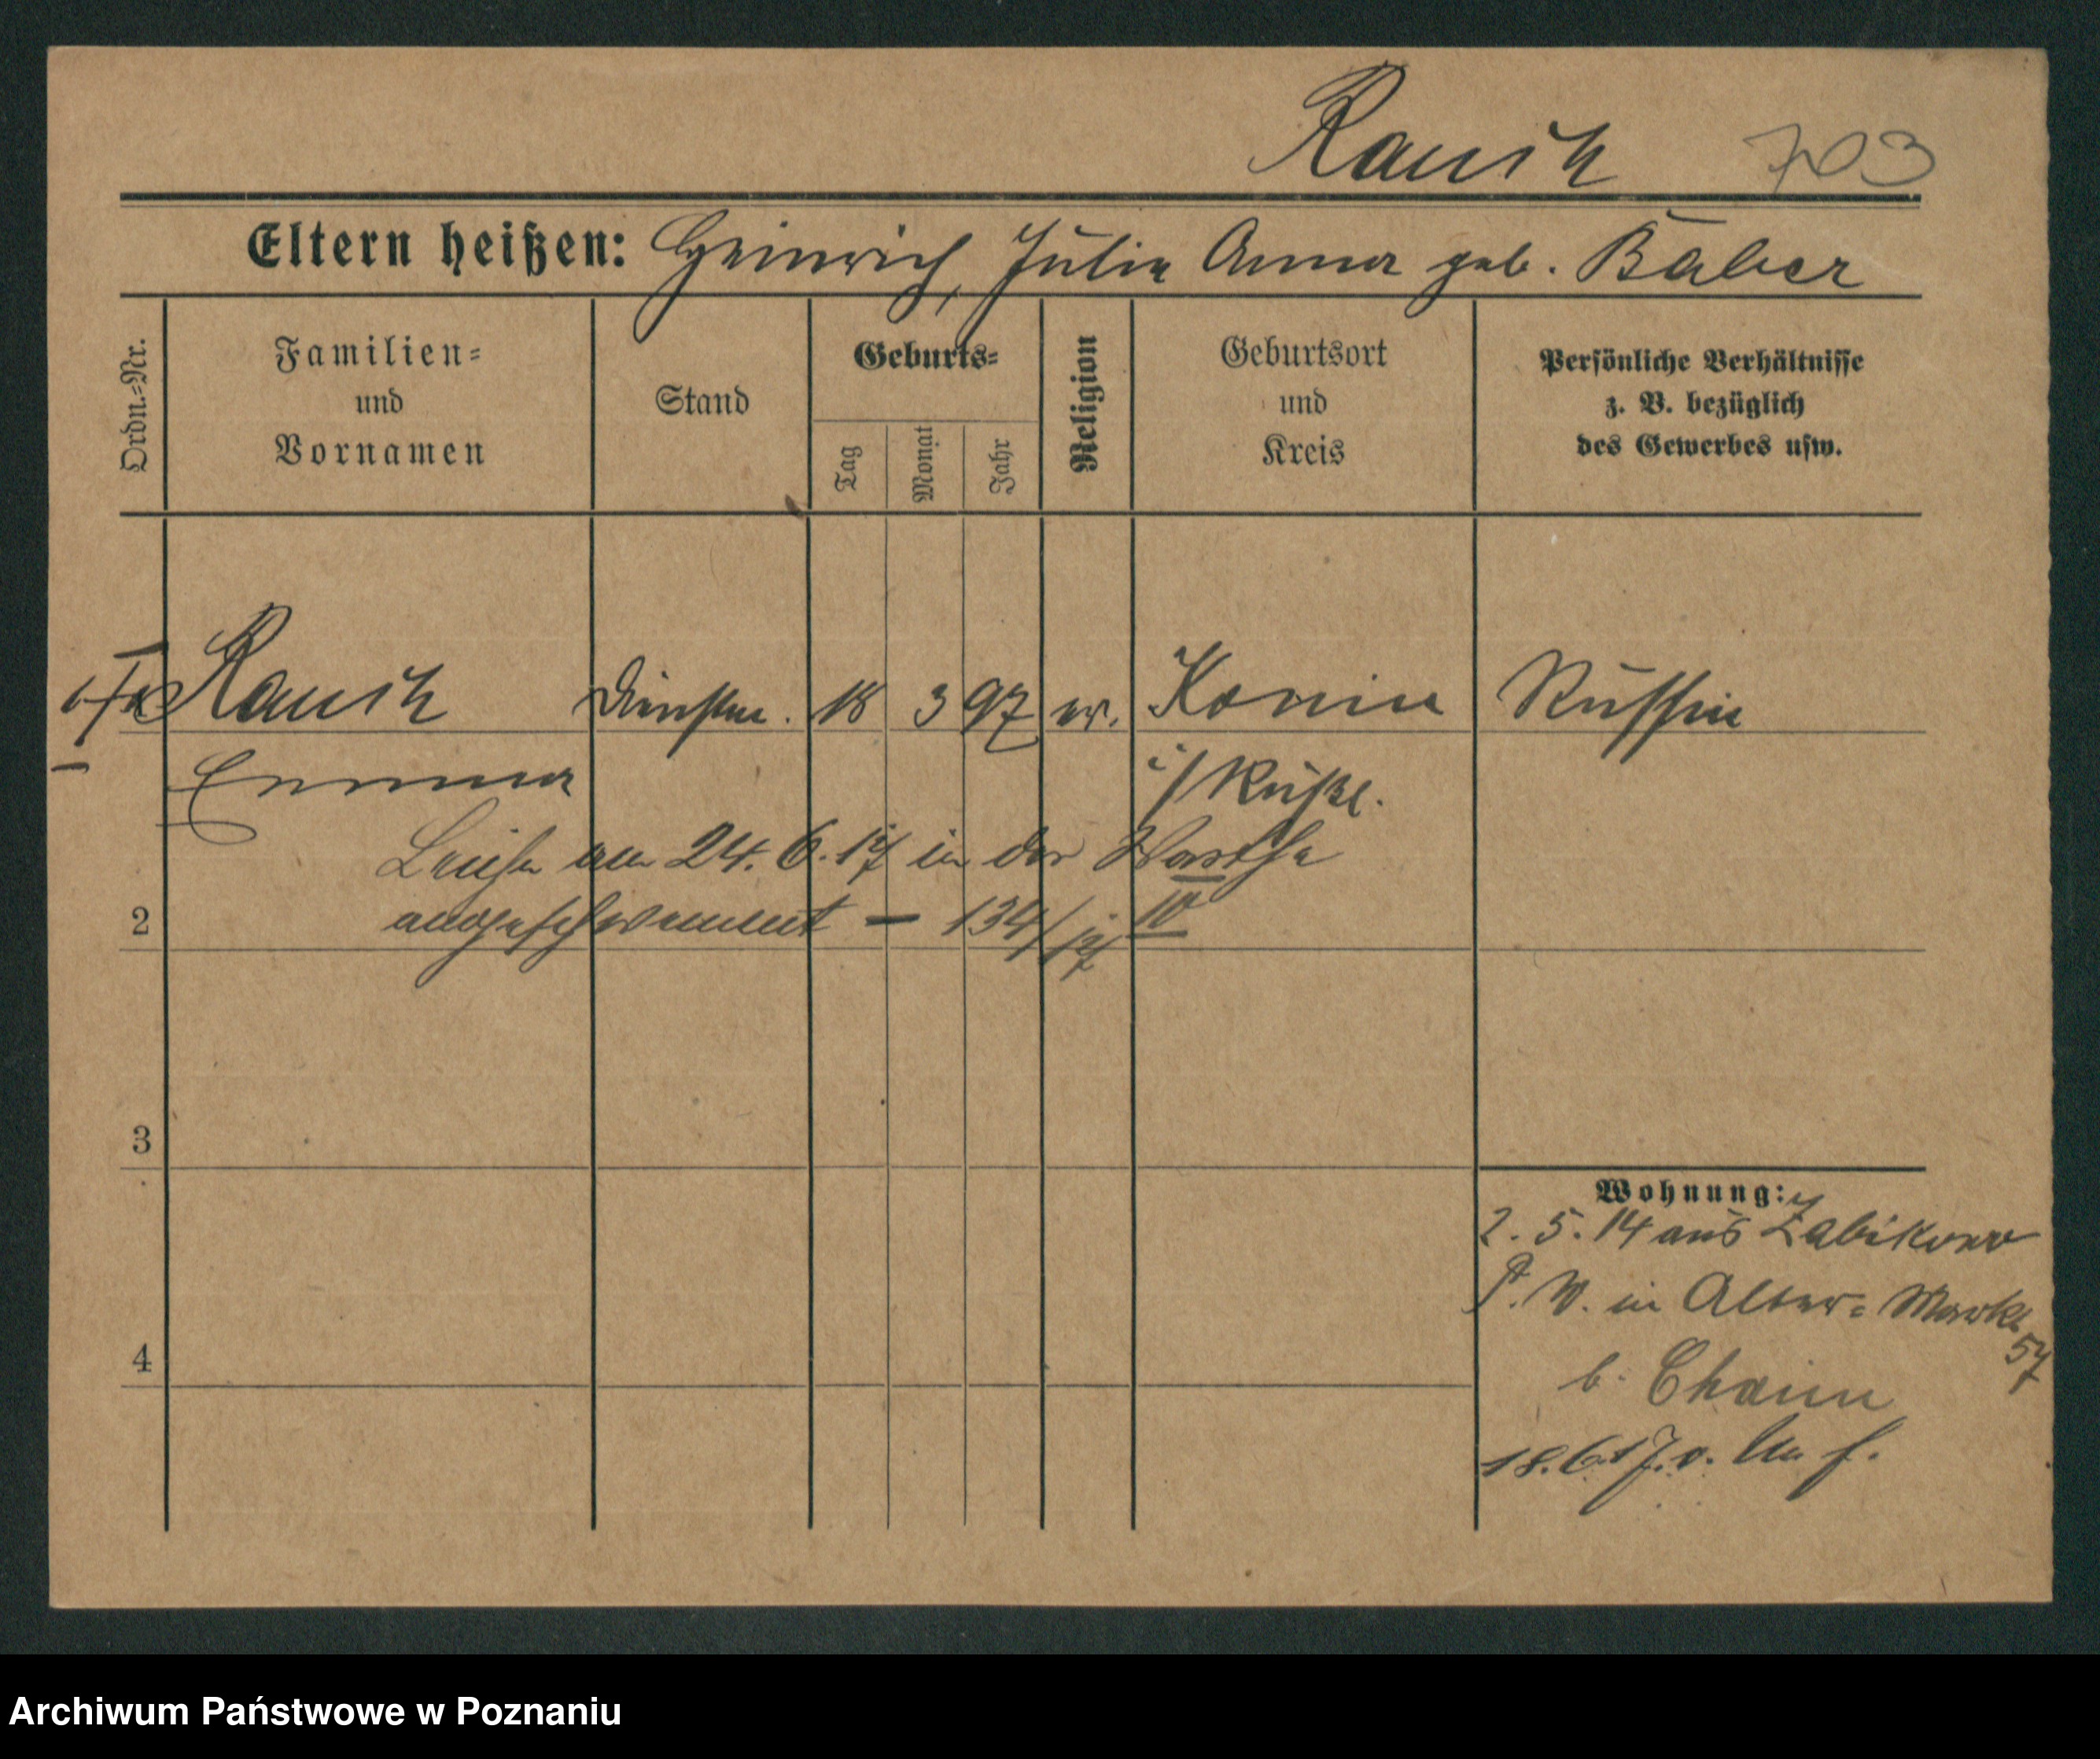 Rausch 703
Eltern heißen: Heinrich, Julie Anna geb. Baber
Ordn.=Nr.
Familien=
und
Vornamen
Stand
Geburts=
Tag
Monat
Jahr
Religion
Geburtsort
und
Kreis
Persönliche Verhältnisse
z. B. bezüglich
des Gewerbes usw.
Rausch Dienstm. 18 3 97 ev. Konin Russin
Emma i/Rußl.
Leiche am 24. 6. 17 in der Warthe
angeschwemmt — 134/17 IV
2
3
4
Wohnung:
2. 5. 14 aus Zabikowo
P. W. in Alter= Markt
57
b. Chaim
18. 6. 17. v.
Archiwum Państwowe w Poznaniu